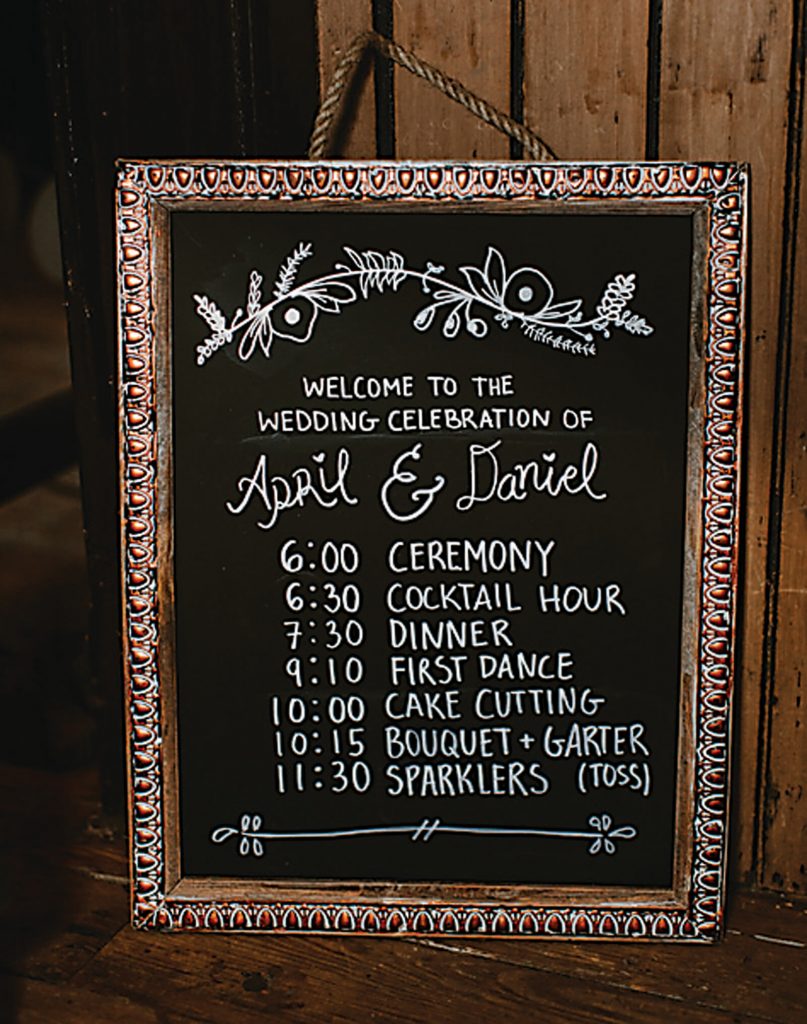 WELCOME TO THE
WEDDING CELEBRATION OF
April & Daniel
6:00 CEREMONY
6:30 COCKTAIL HOUR
7:30 DINNER
9:10 FIRST DANCE
10:00 CAKE CUTTING
10:15 BOUQUET + GARTER
11:30 SPARKLERS (TOSS)